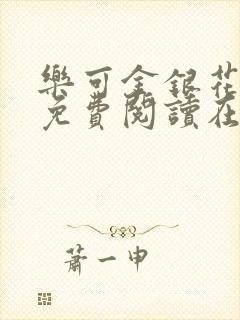 樂可金銀花
免費閱讀在
蕭一申